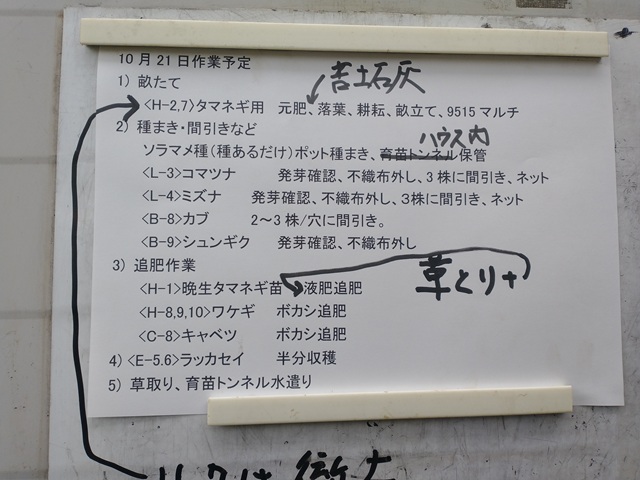 10月21日作業予定
苦土石灰
1) 畝たて
<H-2,7>タマネギ用 元肥、落葉、耕耘、畝立て、9515マルチ
2) 種まき・間引きなど
ハウス内
ソラマメ種(種あるだけ)ポット種まき、育苗トンネル保管
<L-3>コマツナ 発芽確認、不織布外し、3株に間引き、ネット
<L-4>ミズナ 発芽確認、不織布外し、3株に間引き、ネット
<B-8>カブ 2~3株/穴に間引き。
<B-9>シュンギク 発芽確認、不織布外し
3) 追肥作業
草とり+
<H-1>晩生タマネギ苗 液肥追肥
<H-8,9,10>ワケギ ボカシ追肥
<C-8>キャベツ ボカシ追肥
4) <E-5.6>ラッカセイ 半分収穫
5) 草取り、育苗トンネル水遣り